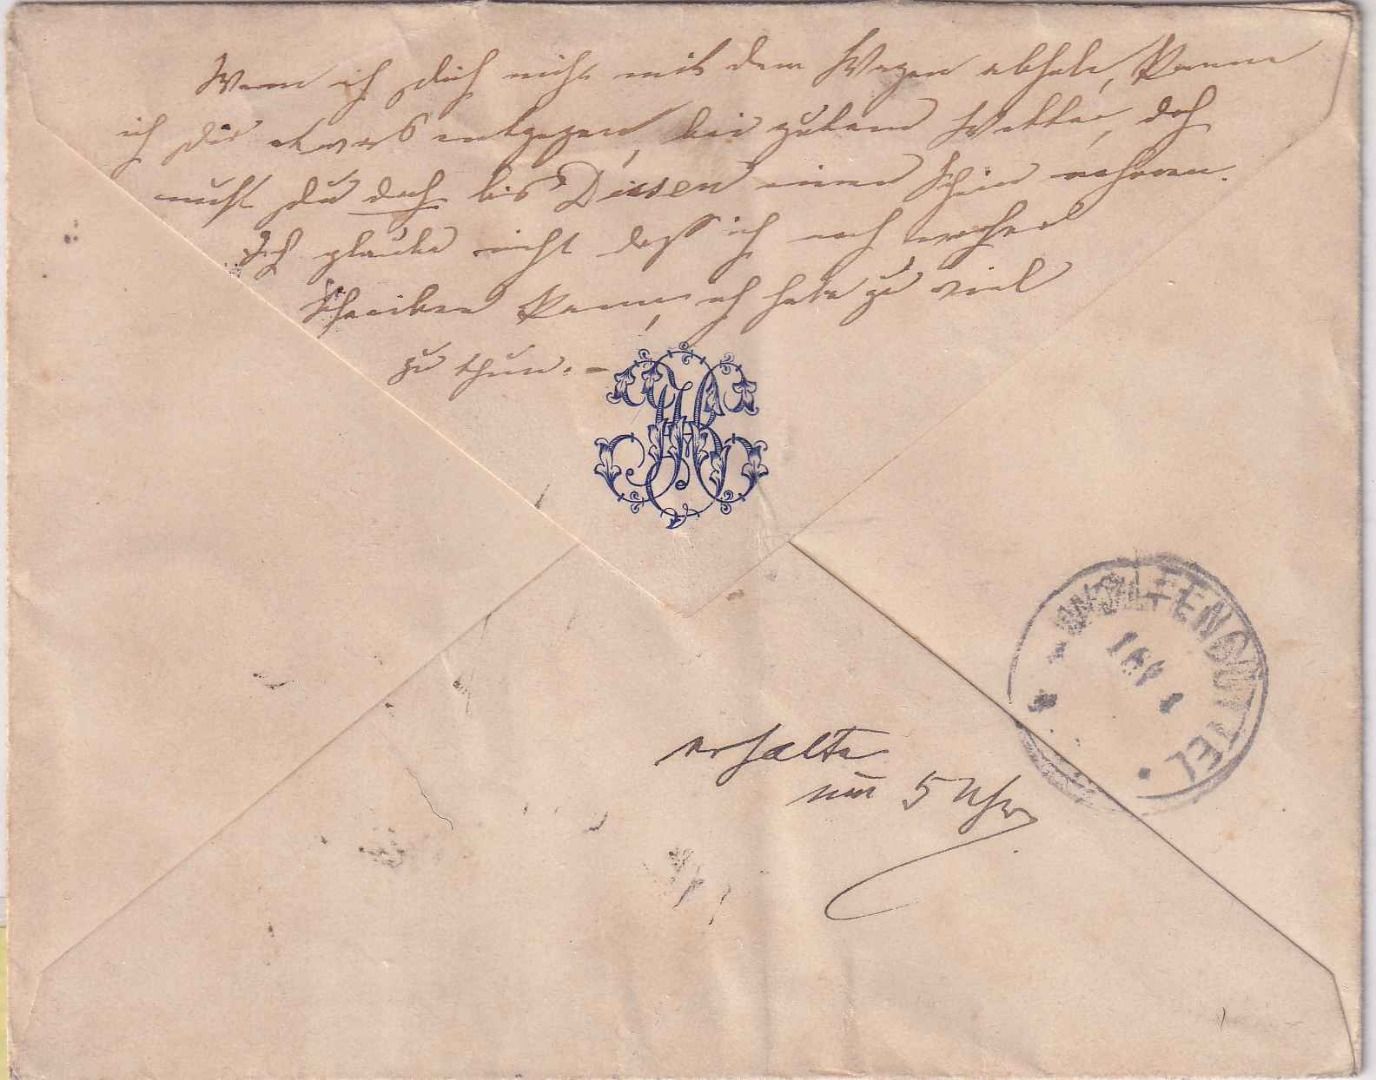 Wenn ich Dich nicht mit dem Wagen abhole, komme
ich Dir etwas entgegen, bei gutem Wetter, doch
mußt Du doch bis Dissen einen Schein nehmen.
Ich glaube nicht daß ich noch mehr
schreiben kann, ich habe zu viel
zu thun. –
WOLFENBÜTTEL
erhalte
um 5 Uhr